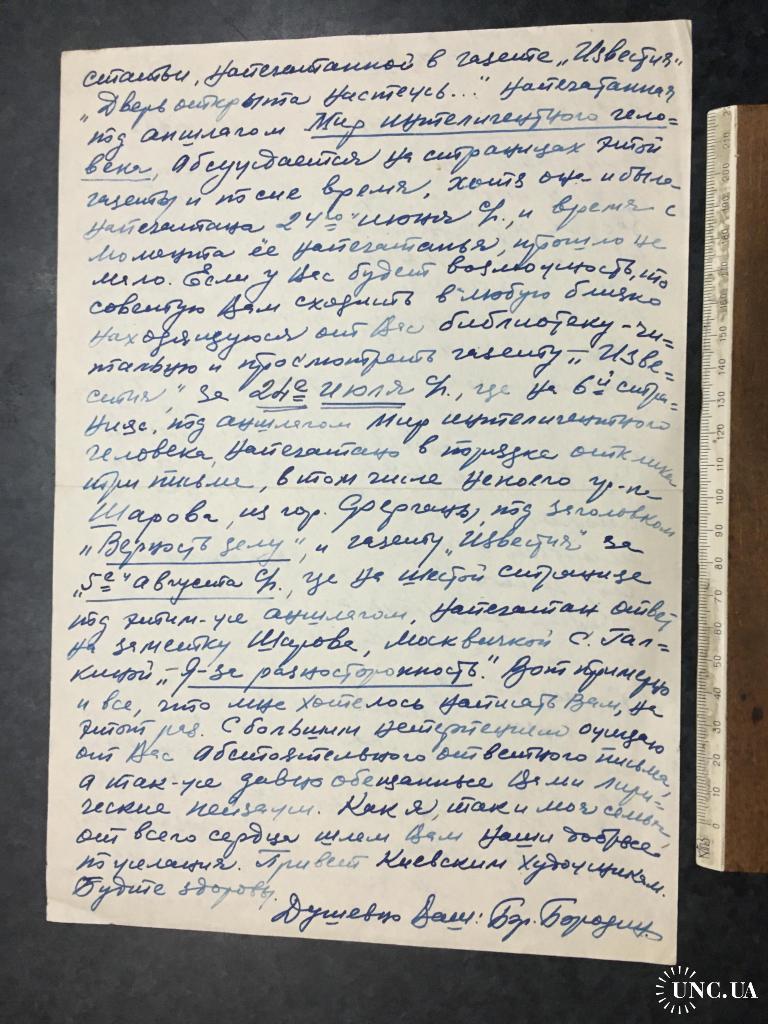 статьи, напечатанной в газете „Известия"
„Дверь открыта настежь..." напечатанная
под аншлагом Мир интелигентного чело-
века, Абсуждается на страницах этой
газеты и по сие время, хотя она и была
напечатана 24го июня с/г., и время с
момента её напечатанья, прошло не
мало. Если у Вас будет возможность, то
советую Вам сходить в любую близко
находящуюся от Вас библиотеку-чи-
тальню и просмотреть газету – „Изве-
стия" за 24е июля с/г., где на 6й стра-
нице, под аншлагом Мир интелигентного
человека, напечатано в порядке отклика
три письма, в том числе некоего гр-на
Шарова, из гор. Ферганы, под заголовком
„Верность делу", и газету „Известия" за
„5е" августа с/г., где на шестой странице
под этим-же аншлагом, напечатан ответ
на заметку Шарова, Москвичкой С. Гал-
киной – „Я-за разносторонность". Вот примерно
и все, что мне хотелось написать Вам, на
этот раз. С большим нетерпением ожидаю
от Вас Абстоятельного ответного письма,
а так-же давно обещанные Вами лири-
ческие пейзажи. Как я, так и моя семья,
от всего сердца шлем Вам наши добрые
пожелания. Привет Киевским художникам.
Будте здоровы.
Душевно Ваш: Бор. Бородин.
UNC.UA